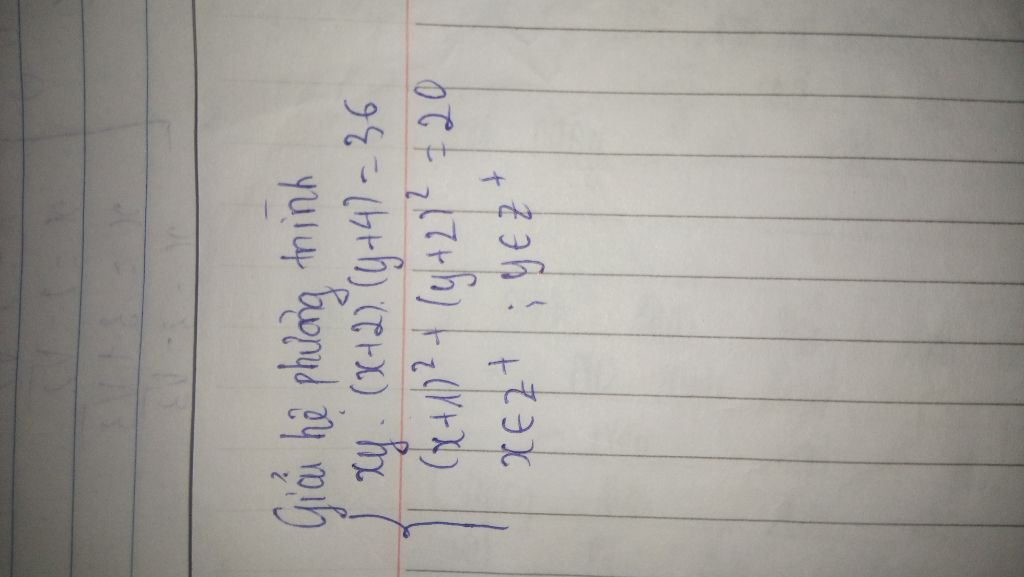 Giải hệ phương trình
xy. (x+2).(y+4) = 36
(x+1)² + (y+2)² = 20
x ∈ Z⁺ ; y ∈ Z⁺